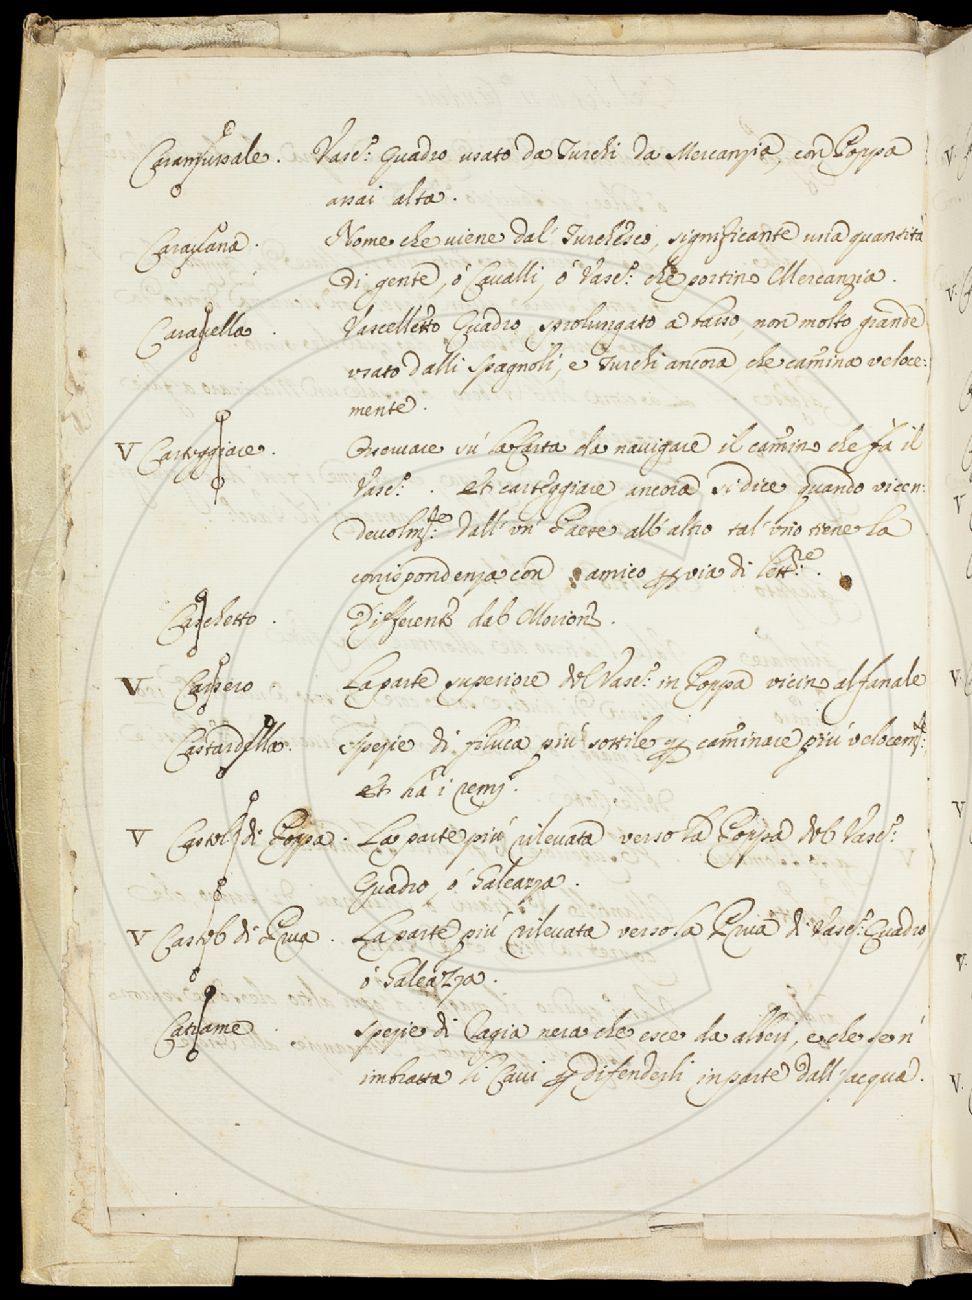 Caramussale. Vasc.º Quadro usato da Turchi da Mercanzia, con Poppa
assai alta.
Caravana. Nome che uiene dal Turchesco, significante una quantità
di gente, ó Caualli, ó Vasc.i che portino Mercanzia.
Carauella. Vascelletto Quadro, sprolungato a basso, non molto grande
usato dalli Spagnoli, e Turchi ancora, che camina veloce:
mente.
V Carteggiare. Osseruare sú la Carta da nauigare il camin che fà il
Vasc.º. et carteggiare ancora si dice quando vicen:
deuolm.te dall'un Paese all'altro tal'uno tiene la
corrispondenza con amico per via di lett.re.
Caschetto. Differente dal Morione.
V Cassero La parte superiore del Vasc.º in Poppa vicino al fanale
Castardella. Spezie di filuca più sottile per caminare più velocem.te
et hà i remj.
V Castel di Poppa. La parte più rileuata verso la Poppa del Vasc.º
Quadro, ó Galeazza.
V Castel di Prua. La parte più rileuata verso la Prua di Vasc.º Quadro
ó Galeazza.
Catrame Spezie di Ragia nera che esce da alberi, e che se n'
imbratta li Caui per difenderli in parte dall'acqua.